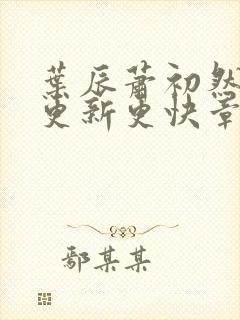 葉辰蕭初然
更新更快章
鄢某某